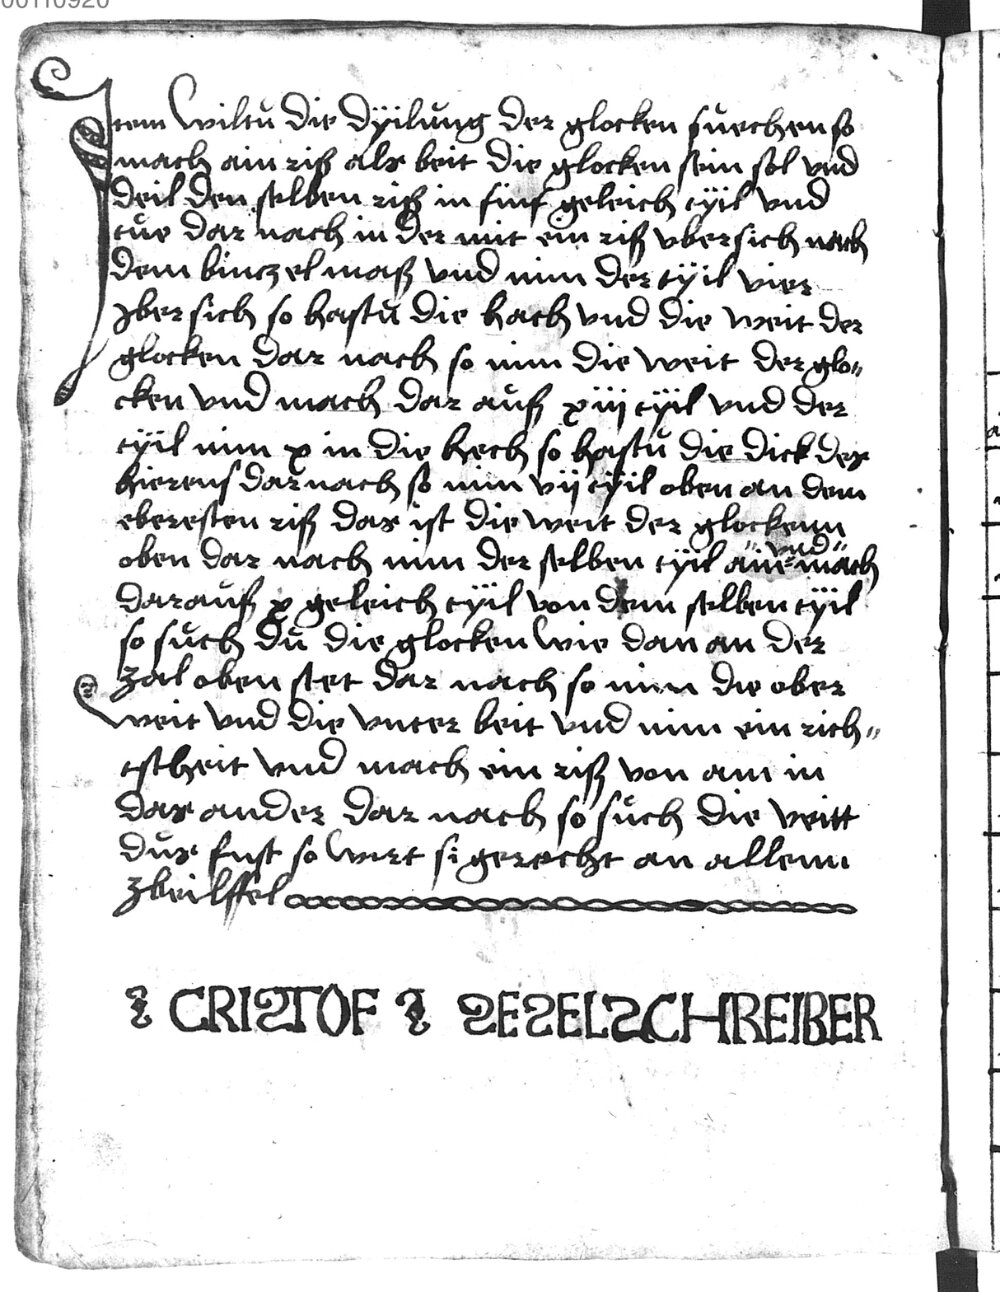 00110920
Item wiltu die dÿilung der glocken suechen so
mach ain riß als beit die glocken sein sol vnd
deil den selben riß in finf geleich tÿil vnd
tue dar nach in der mit ein riß vbersich nach
dem binczel maß vnd nim der tÿil vier
vbersich so hastu die hach vnd die weit der
glocken dar nach so nim die weit der glo„
cken vnd mach dar auß xiij tÿil vnd der
tÿil nim x in die hech so hastu die dick des
hierens dar nach so nim vij tÿil oben an dem
eberesten riß das ist die weit der glockenn
oben dar nach nim der selben tÿil ain vnd mach
darauß x geleich tÿil von dem selben tÿil
so such du die glocken wie dan an der
zal oben stet dar nach so nim die ober
weit vnd die vnter beit vnd nim ein rich„
tscheit vnd mach ein riß von am in
das ander dar nach so such die weitt
dus fust so wirt si gerecht an allenn
zbeilffel
CRISTOF SESELSCHREIBER